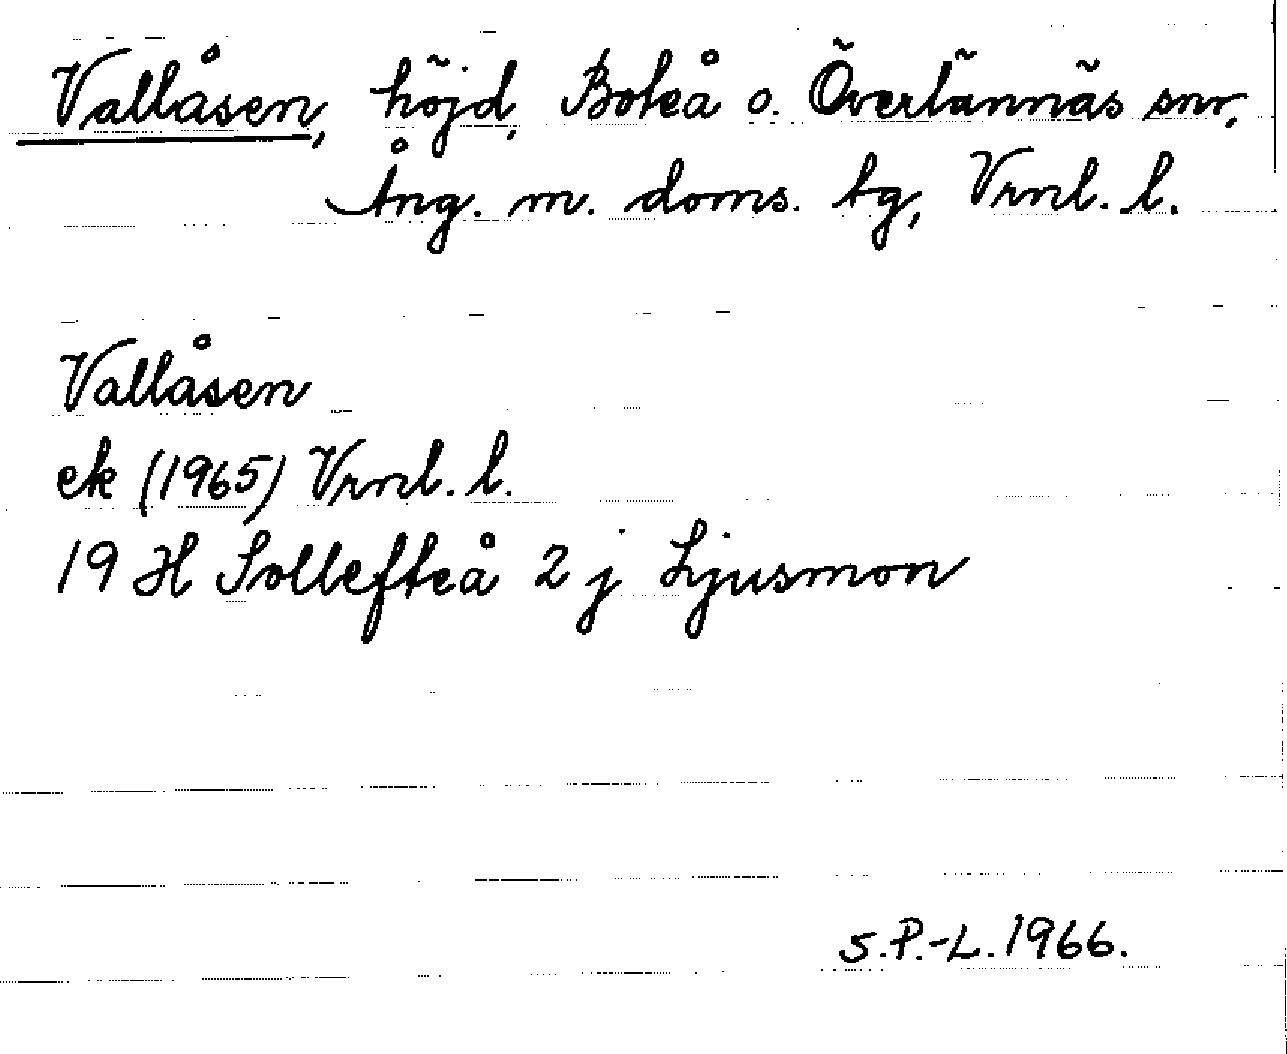 Vallåsen, höjd, Boteå o. Överlännäs snr,
Ång. m. doms. tg, Vrnl. l.
Vallåsen
ek (1965) Vrnl. l.
19 H Sollefteå 2 j Ljusmon
S.P.-L. 1966.